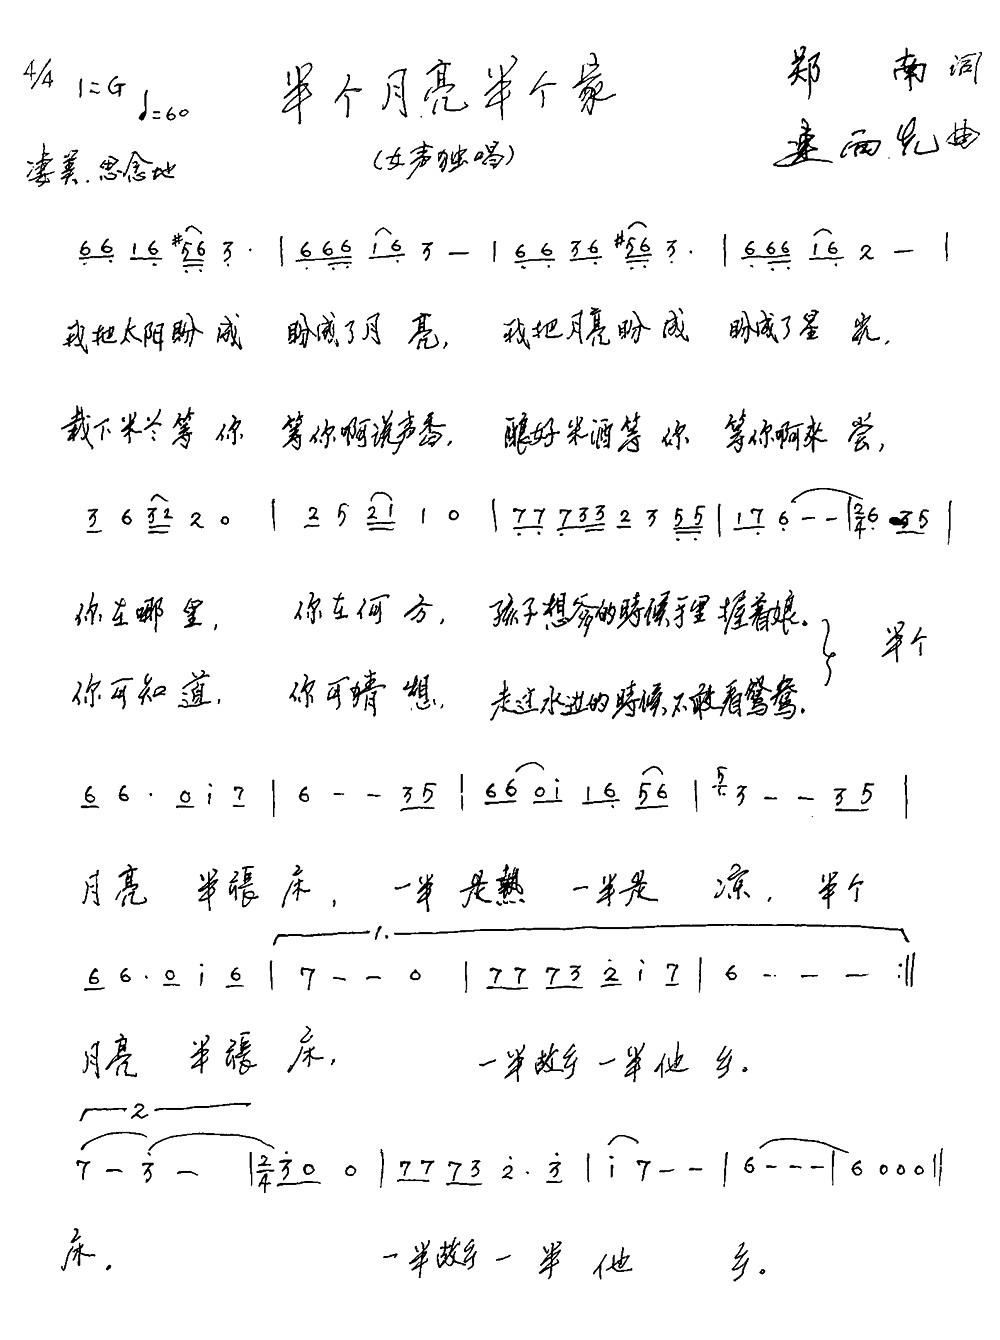 4/4 1=G ♩=60 半个月亮半个家 郑南词
凄美.思念地 (女声独唱) 西 曲
66 16 #56 3· | 666 16 3 — | 66 36 #56 3· | 666 16 2 — |
我把太阳盼成 盼成了月亮, 我把月亮盼成 盼成了星光,
栽下米兰等你 等你啊说声香, 酿好米酒等你 等你啊来尝,
3 6 32 2 0 | 2 5 21 1 0 | 77 733 2 3 55 | 17 6 - - | 2/4 6 35 |
你在哪里, 你在何方, 孩子想爹的時候手里握着娘。 半个
你可知道, 你可猜想, 走过水边的時候,不敢看鴛鴦.
6 6· 0 i 7 | 6 - - 35 | 66 0i 16 56 | 5 3 - - 35 |
月亮 半張床, 一半是熱 一半是凉, 半个
1.
6 6· 0 i 6 | 7 - - 0 | 77 73 2 i 7 | 6 - - - :||
月亮 半張床, 一半故乡一半他乡。
2
7 - 3 - | 2/4 3 0 0 | 77 73 2· 3 | i 7 - - | 6 - - - | 6 0 0 0 ||
床。 一半故乡一半他乡。